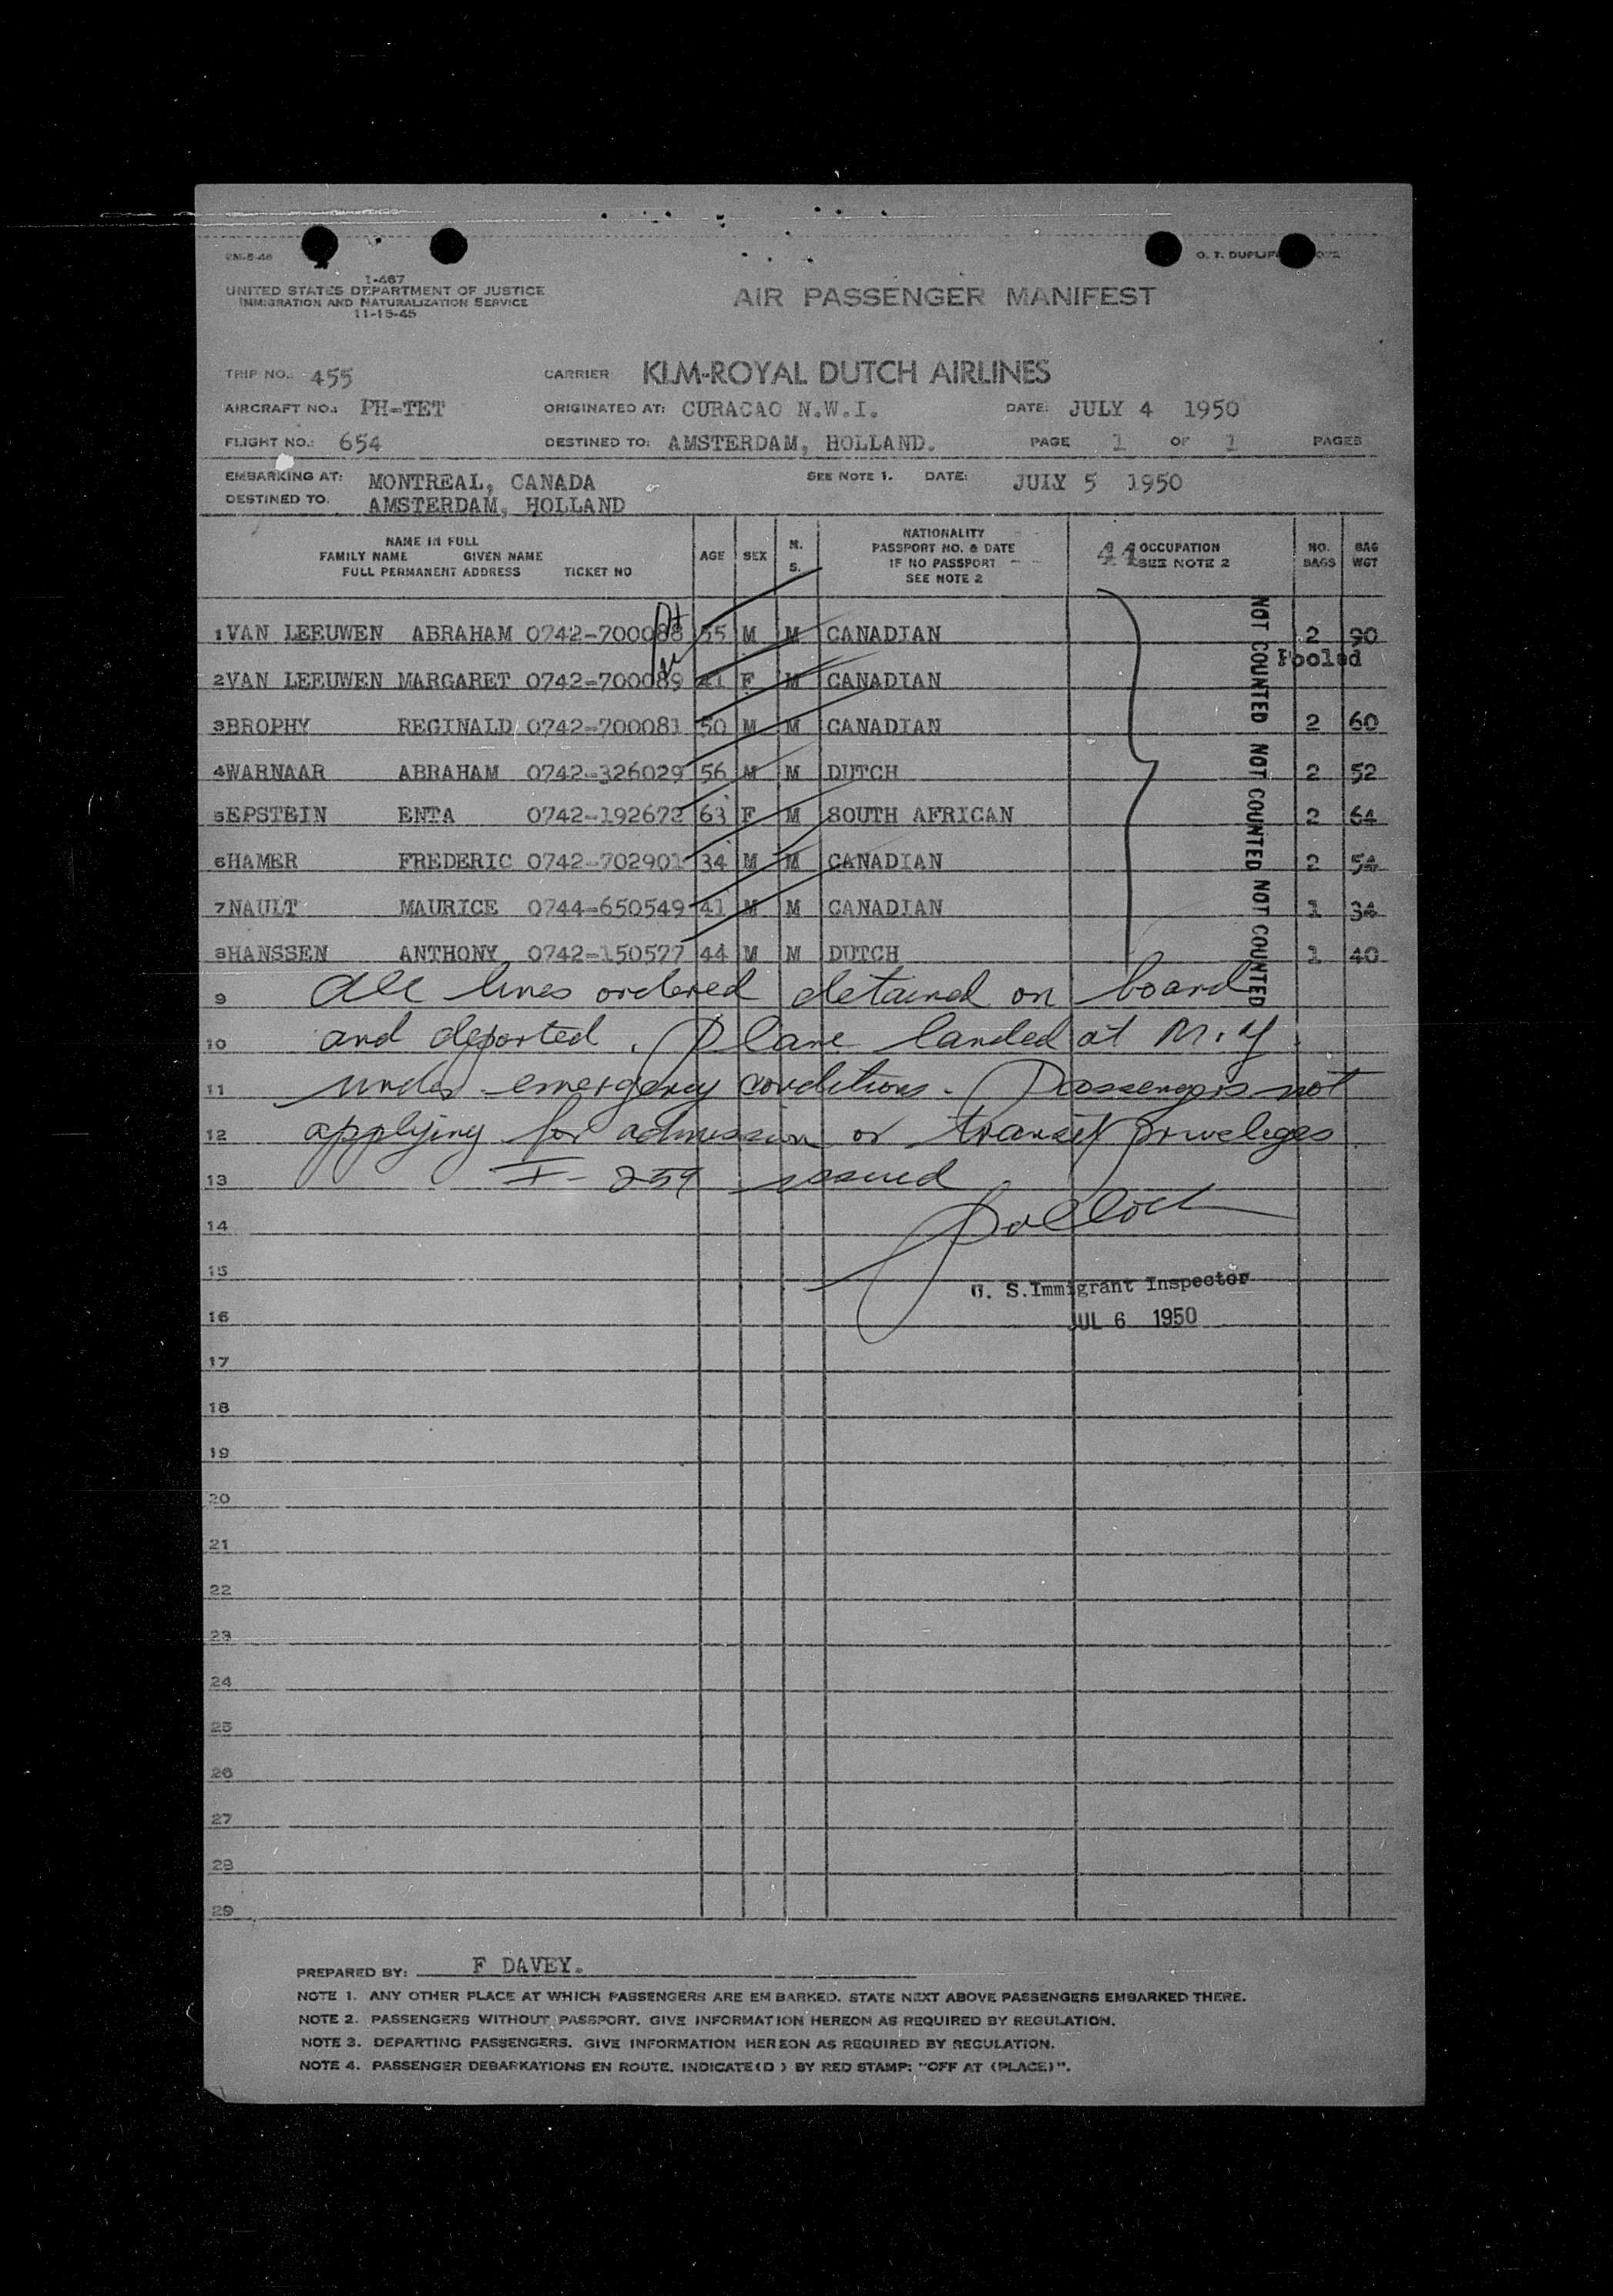 2M-5-46
O. T. DUPLI
I-467
UNITED STATES DEPARTMENT OF JUSTICE
IMMIGRATION AND NATURALIZATION SERVICE
11-15-45
AIR PASSENGER MANIFEST
TRIP NO.: 455 CARRIER KLM-ROYAL DUTCH AIRLINES
AIRCRAFT NO.: PH-TET ORIGINATED AT: CURACAO N.W.I. DATE: JULY 4 1950
FLIGHT NO.: 654 DESTINED TO: AMSTERDAM, HOLLAND. PAGE 1 OF 1 PAGES
EMBARKING AT: MONTREAL, CANADA SEE NOTE 1. DATE: JULY 5 1950
DESTINED TO. AMSTERDAM, HOLLAND
NAME IN FULL
FAMILY NAME GIVEN NAME
FULL PERMANENT ADDRESS TICKET NO
AGE SEX M. S.
NATIONALITY
PASSPORT NO. & DATE
IF NO PASSPORT
SEE NOTE 2
44 OCCUPATION
SEE NOTE 2
NO. BAGS
BAG WGT
1 VAN LEEUWEN ABRAHAM 0742-700088 55 M M CANADIAN 2 90
Pooled
2 VAN LEEUWEN MARGARET 0742-700089 41 F M CANADIAN
3 BROPHY REGINALD 0742-700081 50 M M CANADIAN 2 60
4 WARNAAR ABRAHAM 0742-326029 56 M M DUTCH 2 52
5 EPSTEIN ENTA 0742-192672 63 F M SOUTH AFRICAN 2 64
6 HAMER FREDERIC 0742-702901 34 M M CANADIAN 2 54
7 NAULT MAURICE 0744-650549 41 M M CANADIAN 1 34
8 HANSSEN ANTHONY 0742-150577 44 M M DUTCH 1 40
NOT COUNTED NOT COUNTED NOT COUNTED
9 All lines ordered detained on board
10 and deported. Plane landed at N.Y
11 under emergency conditions. Passengers not
12 applying for admission or transit priveleges
13 I-259 issued
14 Pollock
15 U. S. Immigrant Inspector
16 JUL 6 1950
17
18
19
20
21
22
23
24
25
26
27
28
29
PREPARED BY: F DAVEY.
NOTE 1. ANY OTHER PLACE AT WHICH PASSENGERS ARE EMBARKED. STATE NEXT ABOVE PASSENGERS EMBARKED THERE.
NOTE 2. PASSENGERS WITHOUT PASSPORT. GIVE INFORMATION HEREON AS REQUIRED BY REGULATION.
NOTE 3. DEPARTING PASSENGERS. GIVE INFORMATION HEREON AS REQUIRED BY REGULATION.
NOTE 4. PASSENGER DEBARKATIONS EN ROUTE. INDICATE(D) BY RED STAMP: "OFF AT (PLACE)".